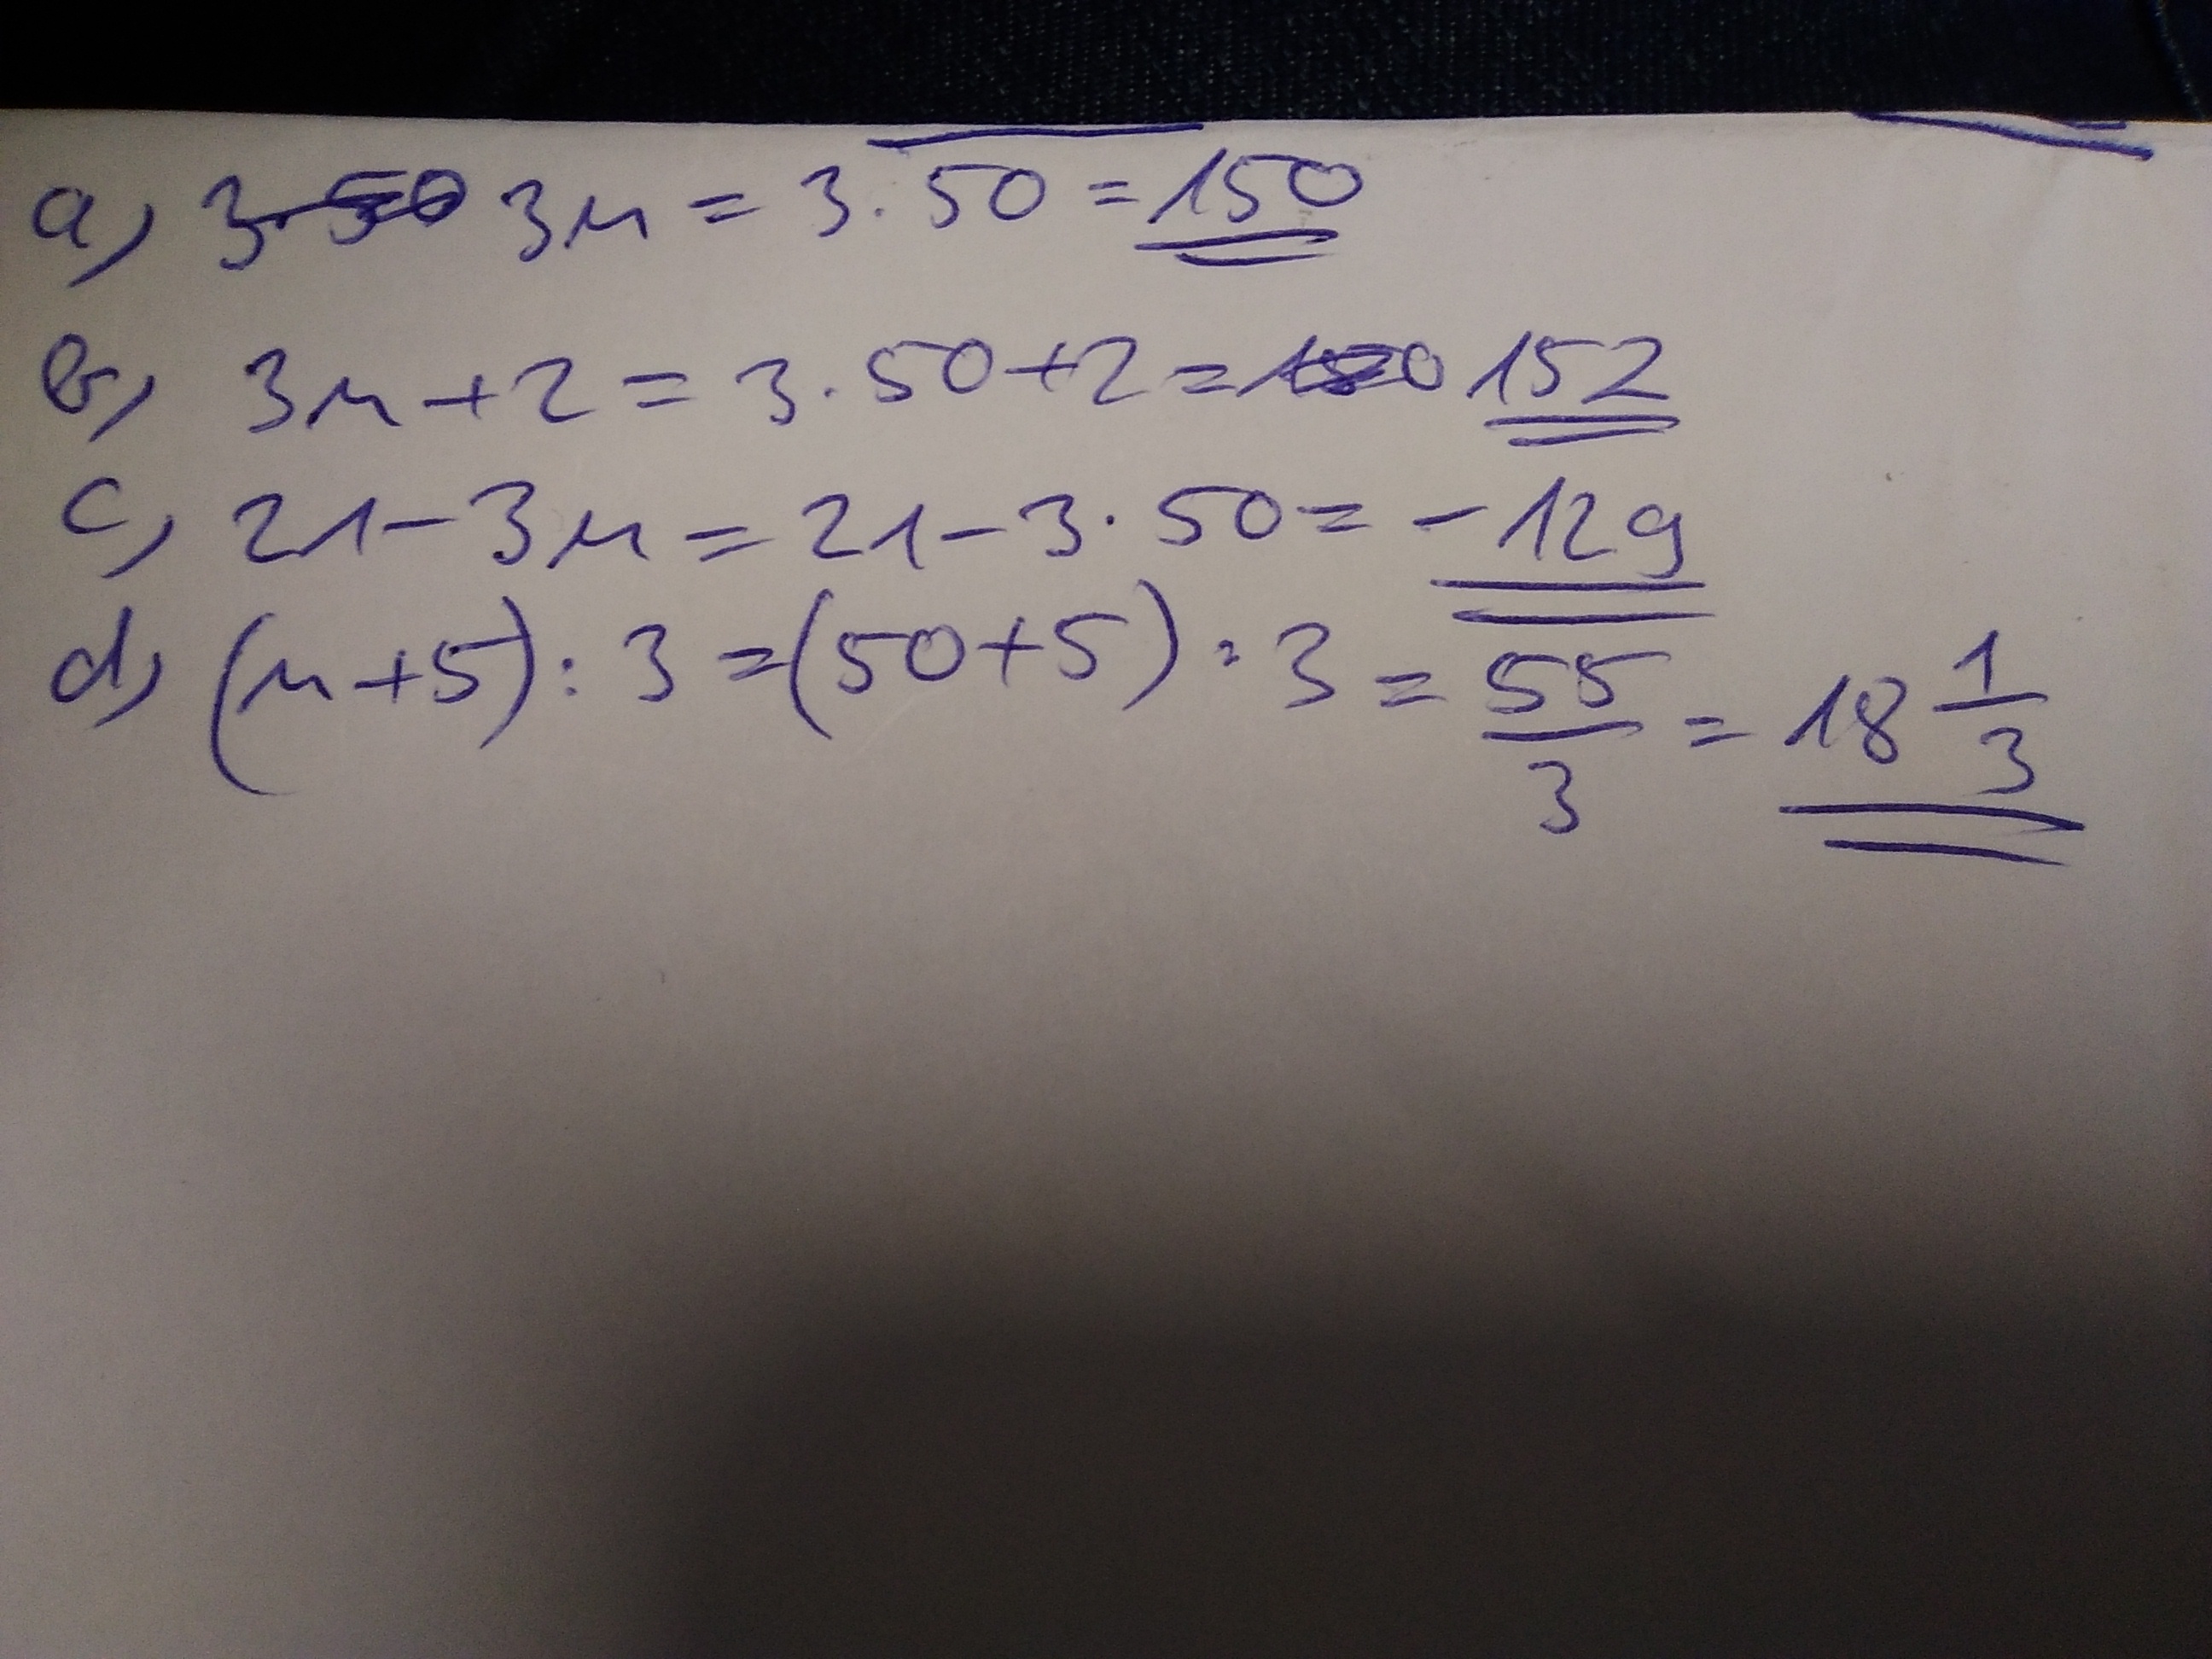 a) 3n = 3 · 50 = 150
b) 3n + 2 = 3 · 50 + 2 = 152
c) 21 - 3n = 21 - 3 · 50 = -129
d) (n + 5) : 3 = (50 + 5) : 3 = 55/3 = 18 1/3